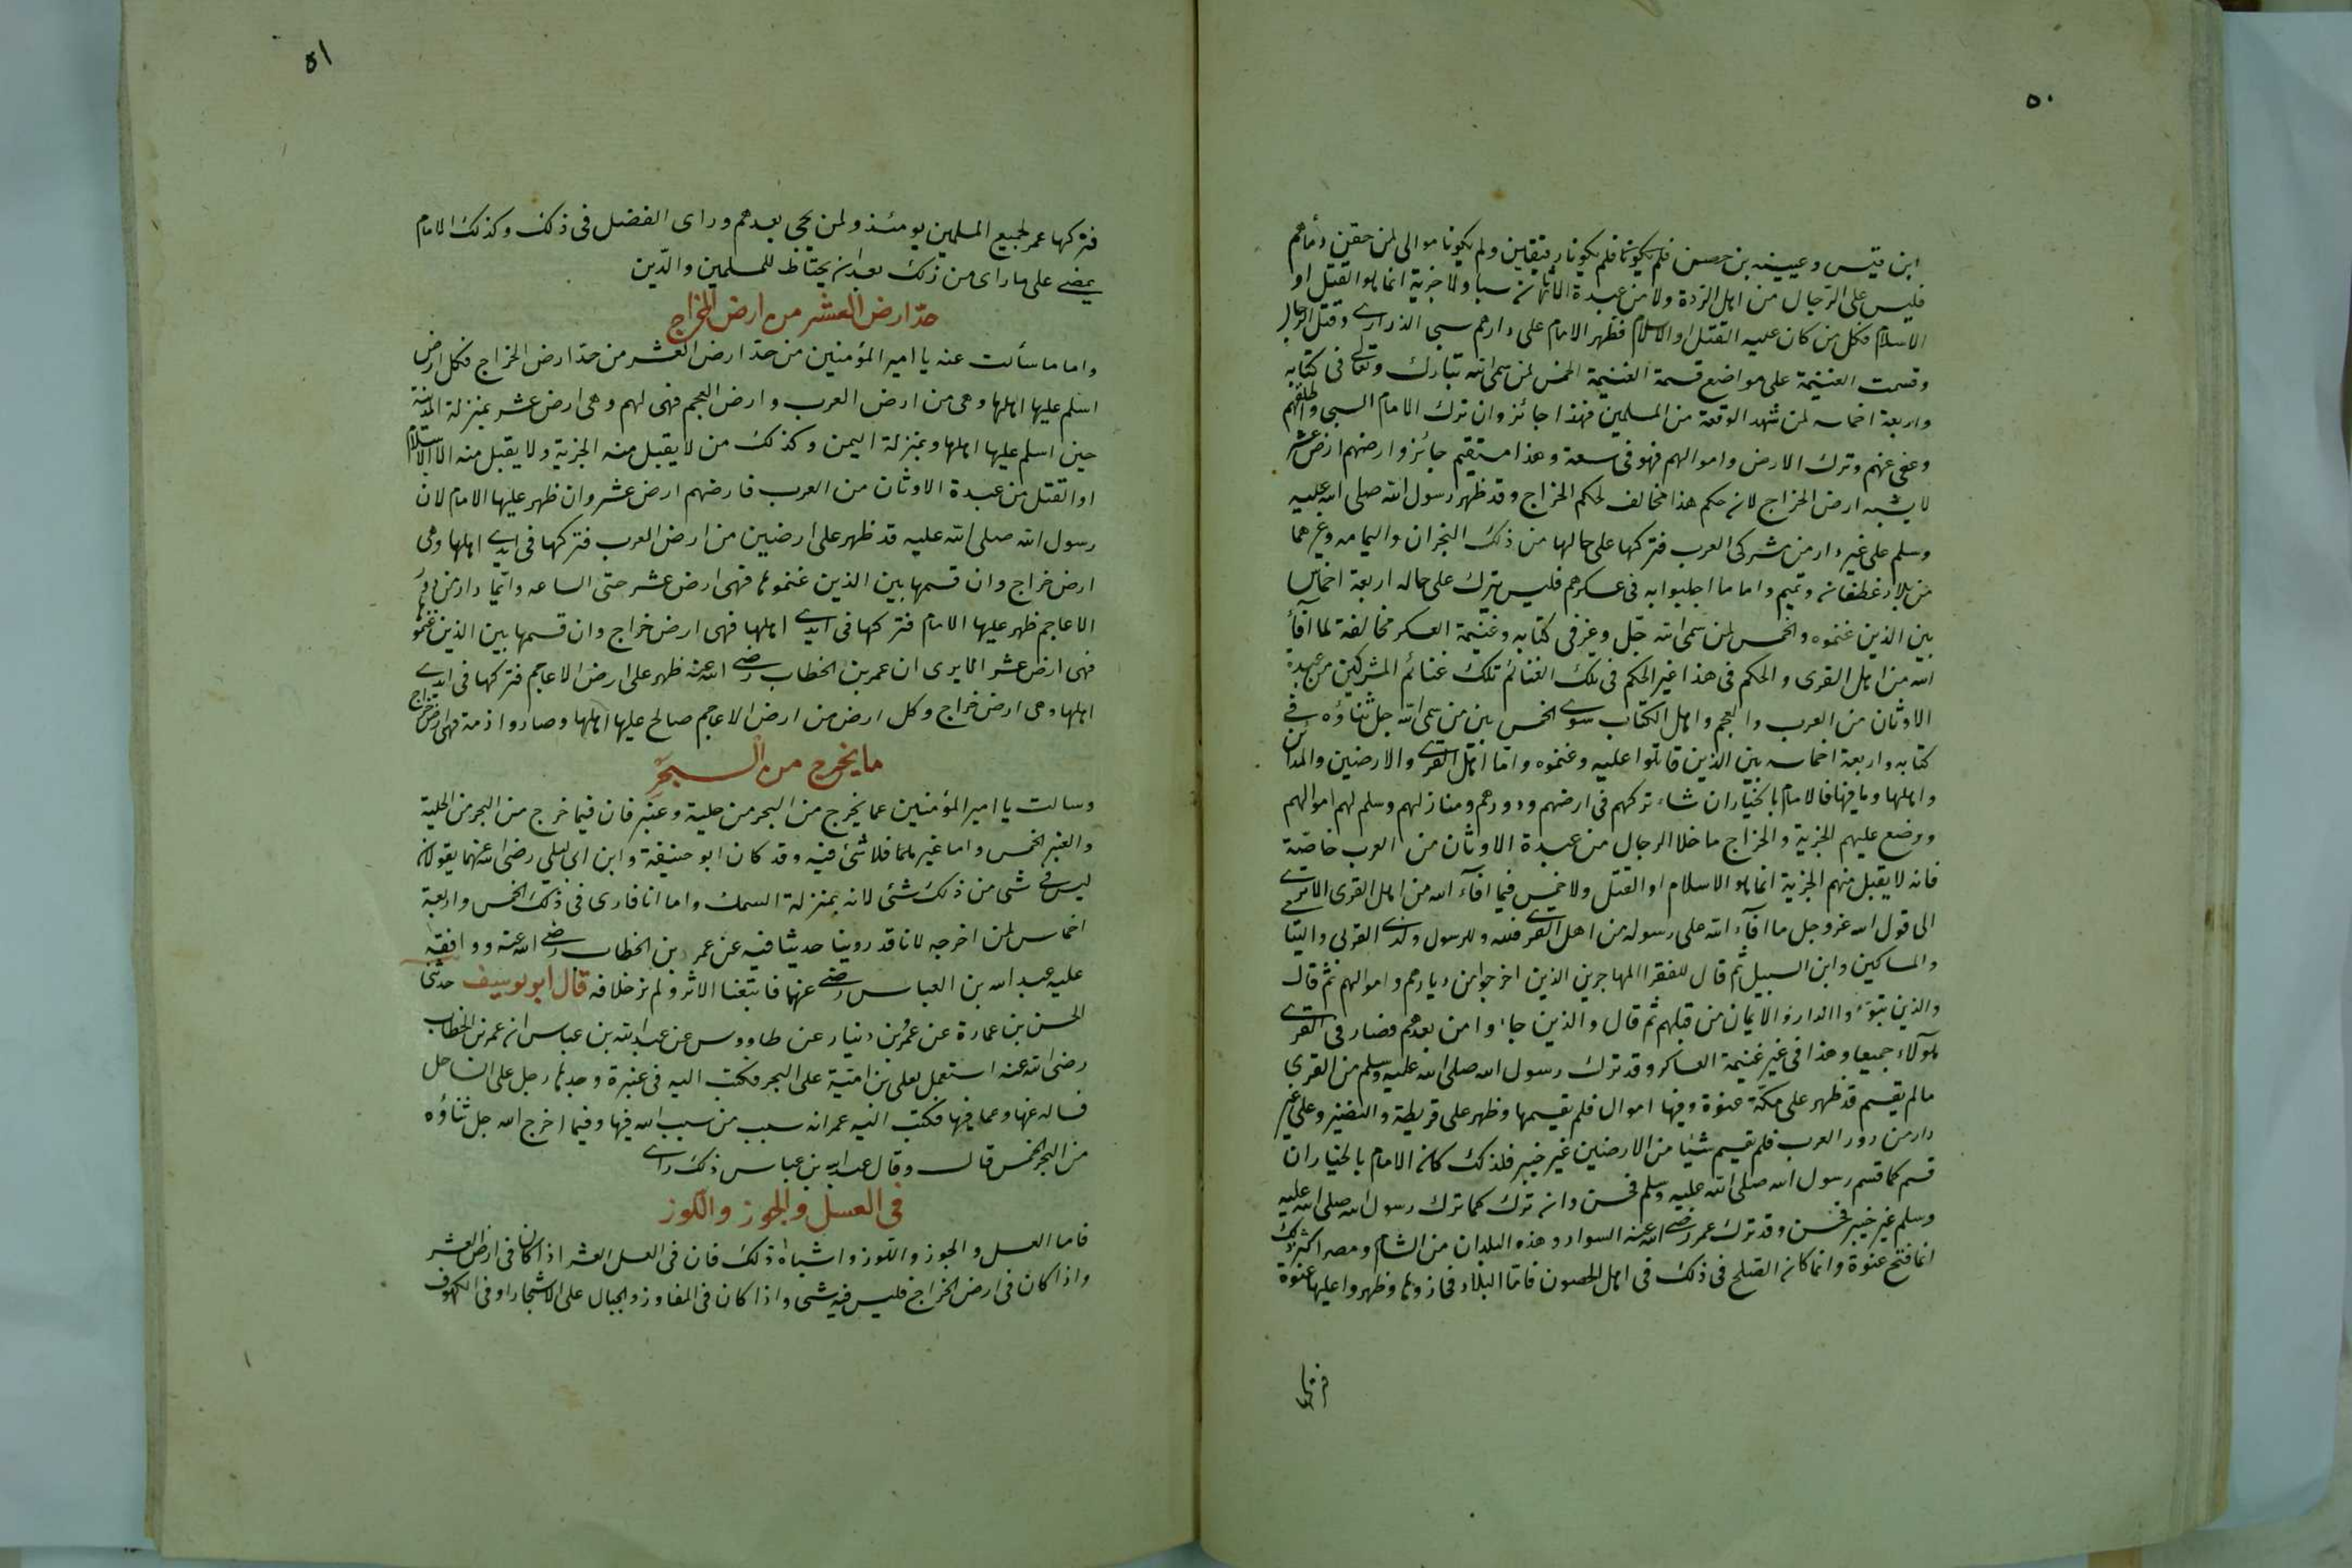 ٥٠
ابن قيس وعيينه بن حصن فلم يكونا رقيقين ولم يكونا موالى لمن حقن دمأهم
فليس على الرّجال من اهل الرّدة ولا من عبدة الاوثان سبا ولا جزية انما هو القتل او
الاسلام فكل من كان عليه القتل او الاسلام فظهر الامام على دارهم سبى الذرارى وقتل الرجال
وقسمت الغنيمة على مواضع قسمة الغنيمة الخمس لمن سمى الله تبارك وتعالى فى كتابه
واربعة اخماسه لمن شهد الوقعة من المسلمين فهذا جائز وان ترك الامام السبى واطلقهم
وعفى عنهم وترك الارض واموالهم فهو فى سعة وهذا مستقيم جائز وارضهم ارض عشر
لا يشبه ارض الخراج لانه حكم هذا مخالف لحكم الخراج وقد ظهر رسول الله صلى الله عليه
وسلم على غير دار من مشركى العرب فتركها على حالها من ذلك النجران واليمامه وغيرهما
من بلاد غطفان وتميم واما ما اجلبوا به فى عسكرهم فليس يترك على حاله اربعة اخماس
بين الذين غنموه والخمس لمن سمى الله جل وعز فى كتابه وغنيمة العسكر مخالفة لما افآء
الله من اهل القرى والحكم فى هذا غير الحكم فى تلك الغنائم تلك غنائم المشركين من عبدة
الاوثان من العرب والعجم واهل الكتاب سوى الخمس بين من سمى الله جل ثناؤه فى
كتابه واربعة اخماسه بين الذين قاتلوا عليه وغنموه واما اهل القرى والارضين والمدائن
واهلها وما فيها فالامام بالخيار ان شاء تركهم فى ارضهم ودورهم ومنازلهم وسلم لهم اموالهم
ووضع عليهم الجزية والخراج ما خلا الرجال من عبدة الاوثان من العرب خاصّة
فانه لا يقبل منهم الجزية انما هو الاسلام او القتل ولا خمس فيما افآء الله من اهل القرى الا ترى
الى قول الله عز وجل ما افآء الله على رسوله من اهل القرى فلله وللرسول ولذى القربى واليتا
والمساكين وابن السبيل ثم قال للفقرا المهاجرين الذين اخرجوا من ديارهم واموالهم ثم قال
والذين تبوّءوا الدار والايمان من قبلهم ثم قال والذين جاءوا من بعدهم فصار فى القرى
هولآء جميعا وهذا فى غير غنيمة العساكر وقد ترك رسول الله صلى الله عليه وسلم من القرى
ما لم يقسم قد ظهر على مكة عنوة وفيها اموال فلم يقسمها وظهر على قريظة والنضير وعلى غير
دار من دور العرب فلم يقسم شيئا من الارضين غير خيبر فلذلك كان الامام بالخيار ان
قسم كما قسم رسول الله صلى الله عليه وسلم فحسن وان ترك كما ترك رسول الله صلى الله عليه
وسلم غير خيبر فحسن وقد ترك عمر رضى الله عنه السواد وهذه البلدان من الشام ومصر اكثر ذلك
انما فتح عنوة وانما كان الصّلح فى ذلك فى اهل الحصون فامّا البلاد فحازوها وظهروا عليها عنوة
فتركها
٥١
فتركها عمر لجميع المسلمين يومئذ ولمن يجى بعدهم وراى الفضل فى ذلك وكذلك الامام
يمضى على ما راى من ذلك بعد ان يحتاط للمسلمين والدّين
حدّ ارض العشر من ارض الخراج
واما ما سألت عنه يا امير المؤمنين من حدّ ارض العشر من حدّ ارض الخراج فكل ارض
اسلم عليها اهلها وهى من ارض العرب وارض العجم فهى لهم وهى ارض عشر بمنزلة المدينة
حين اسلم عليها اهلها وبمنزلة اليمن وكذلك من لا يقبل منه الجزية ولا يقبل منه الا الاسلام
او القتل من عبدة الاوثان من العرب فارضهم ارض عشر وان ظهر عليها الامام لان
رسول الله صلى الله عليه قد ظهر على ارضين من ارض العرب فتركها فى ايدى اهلها وهى
ارض خراج وان قسمها بين الذين غنموها فهى ارض عشر حتى الساعه وايّما دار من دور
الاعاجم ظهر عليها الامام فتركها فى ايدى اهلها فهى ارض خراج وان قسمها بين الذين غنموها
فهى ارض عشر الا يرى ان عمر بن الخطاب رضى الله عنه ظهر على ارض الاعاجم فتركها فى ايدى
اهلها وهى ارض خراج وكل ارض من ارض الاعاجم صالح عليها اهلها وصاروا ذمة فهى ارض خراج
ما يخرج من البحر
وسالت يا امير المؤمنين عما يخرج من البحر من حلية وعنبر فان فيما خرج من البحر من الحلية
والعنبر الخمس واما غيرهما فلا شئ فيه وقد كان ابو حنيفة وابن ابى ليلى رضى الله عنهما يقولان
ليس فى شى من ذلك شئى لانه بمنزلة السمك واما انا فارى فى ذلك الخمس واربعة
اخماس لمن اخرجه لانا قد روينا حديثا فيه عن عمر بن الخطاب رضى الله عنه ووافقه
عليه عبد الله بن العباس رضى عنها فاتبعنا الاثر ولم نر خلافه قال ابو يوسف حدثنا
الحسن بن عمارة عن عمرو بن دينار عن طاووس عن عبد الله بن عباس ان عمر بن الخطاب
رضى الله عنه استعمل يعلى بن امية على البحر فكتب اليه فى عنبرة وجدها رجل على الساحل
فساله عنها وعما فيها فكتب اليه عمر انه سبب من سبب الله فيها وفيما اخرج الله جل ثناؤه
من البحر الخمس قال وقال عبد الله بن عباس ذلك راى
فى العسل والجوز واللوز
فاما العسل والجوز واللوز واشباه ذلك فان فى العسل العشر اذا كان فى ارض العشر
واذا كان فى ارض الخراج فليس فيه شى واذا كان فى المفاوز والجبال على الاشجار او فى الكهوف